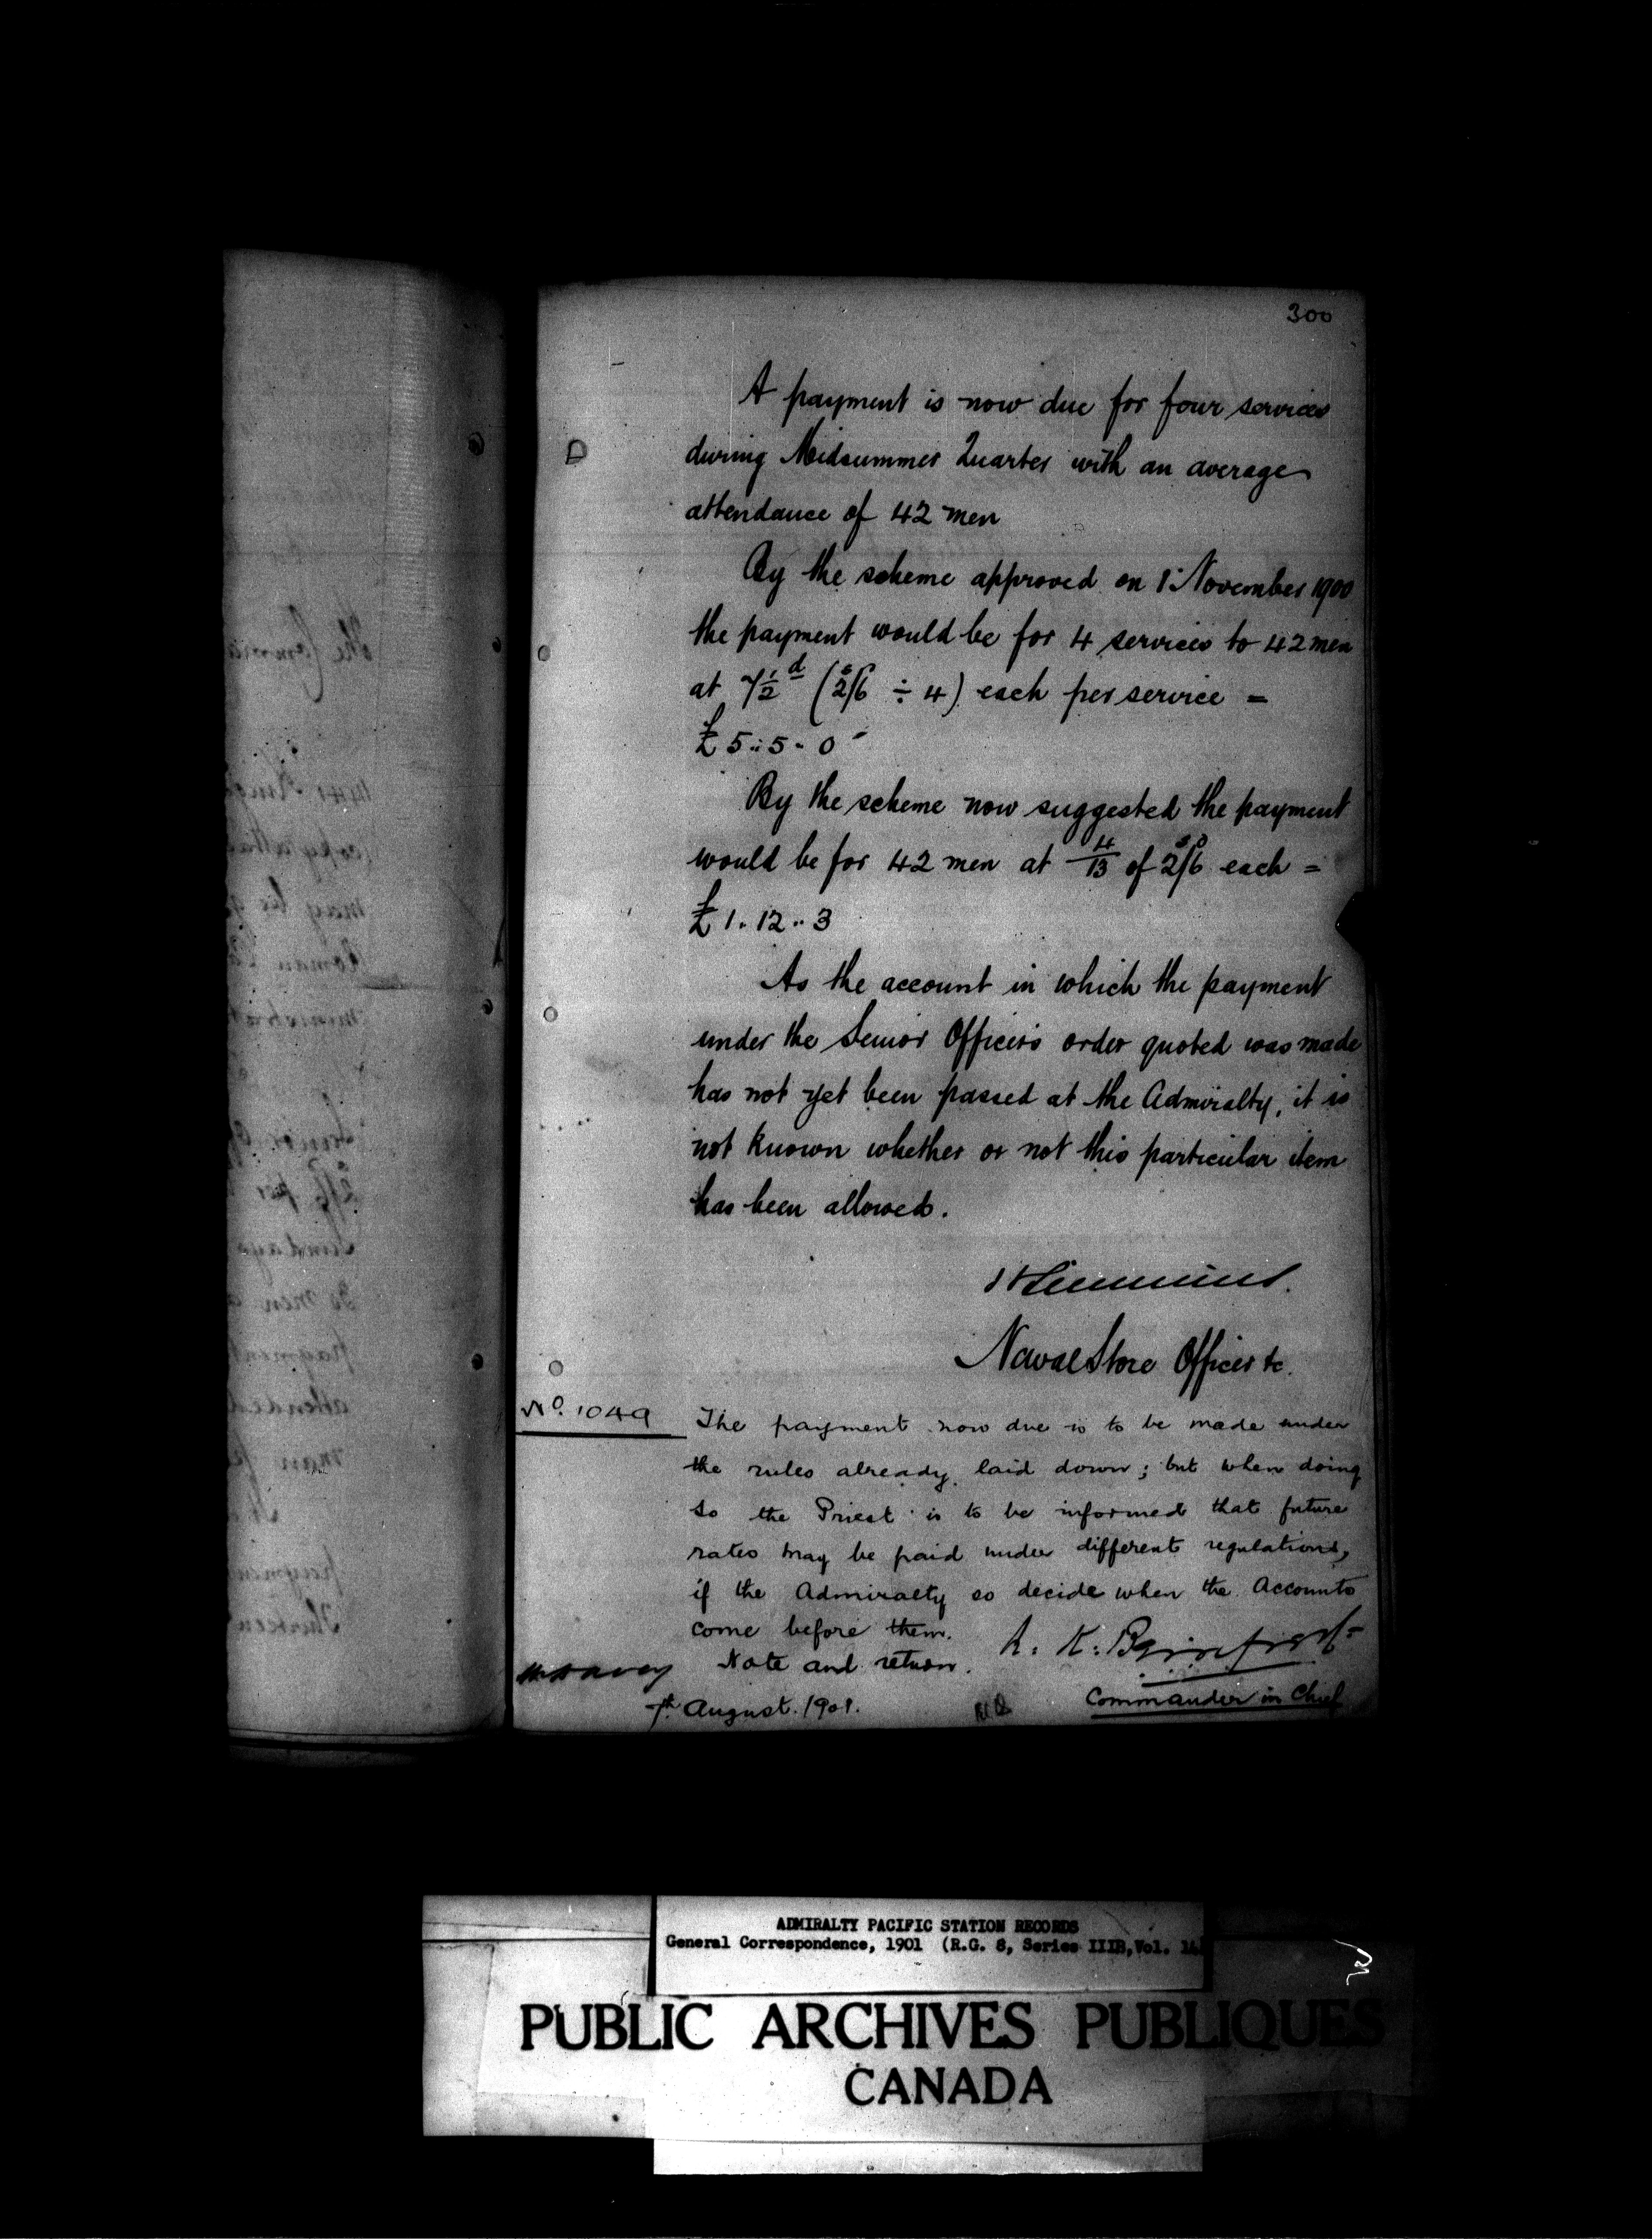 300
A payment is now due for four services
during Midsummer Quarter with an average
attendance of 42 men
By the scheme approved on 1st November 1900
the payment would be for 4 services to 42 men
at 7½d (2s/6d ÷ 4) each per service =
£5:5.0
By the scheme now suggested the payment
would be for 42 men at 4/13 of 2s/6d each =
£1.12..3
As the account in which the payment
under the Senior Officer's order quoted was made
has not yet been passed at the Admiralty, it is
not known whether or not this particular item
has been allowed.
Naval Store Officer &c.
No. 1049
The payment now due is to be made under
the rules already laid down; but when doing
so the Priest is to be informed that future
rates may be paid under different regulations,
if the Admiralty so decide when the Accounts
come before them.
Note and return.
A. K. Bickford
7th August. 1901.
Commander in Chief
ADMIRALTY PACIFIC STATION RECORDS
General Correspondence, 1901 (R.G. 8, Series IIIB, Vol. 14)
PUBLIC ARCHIVES PUBLIQUES
CANADA